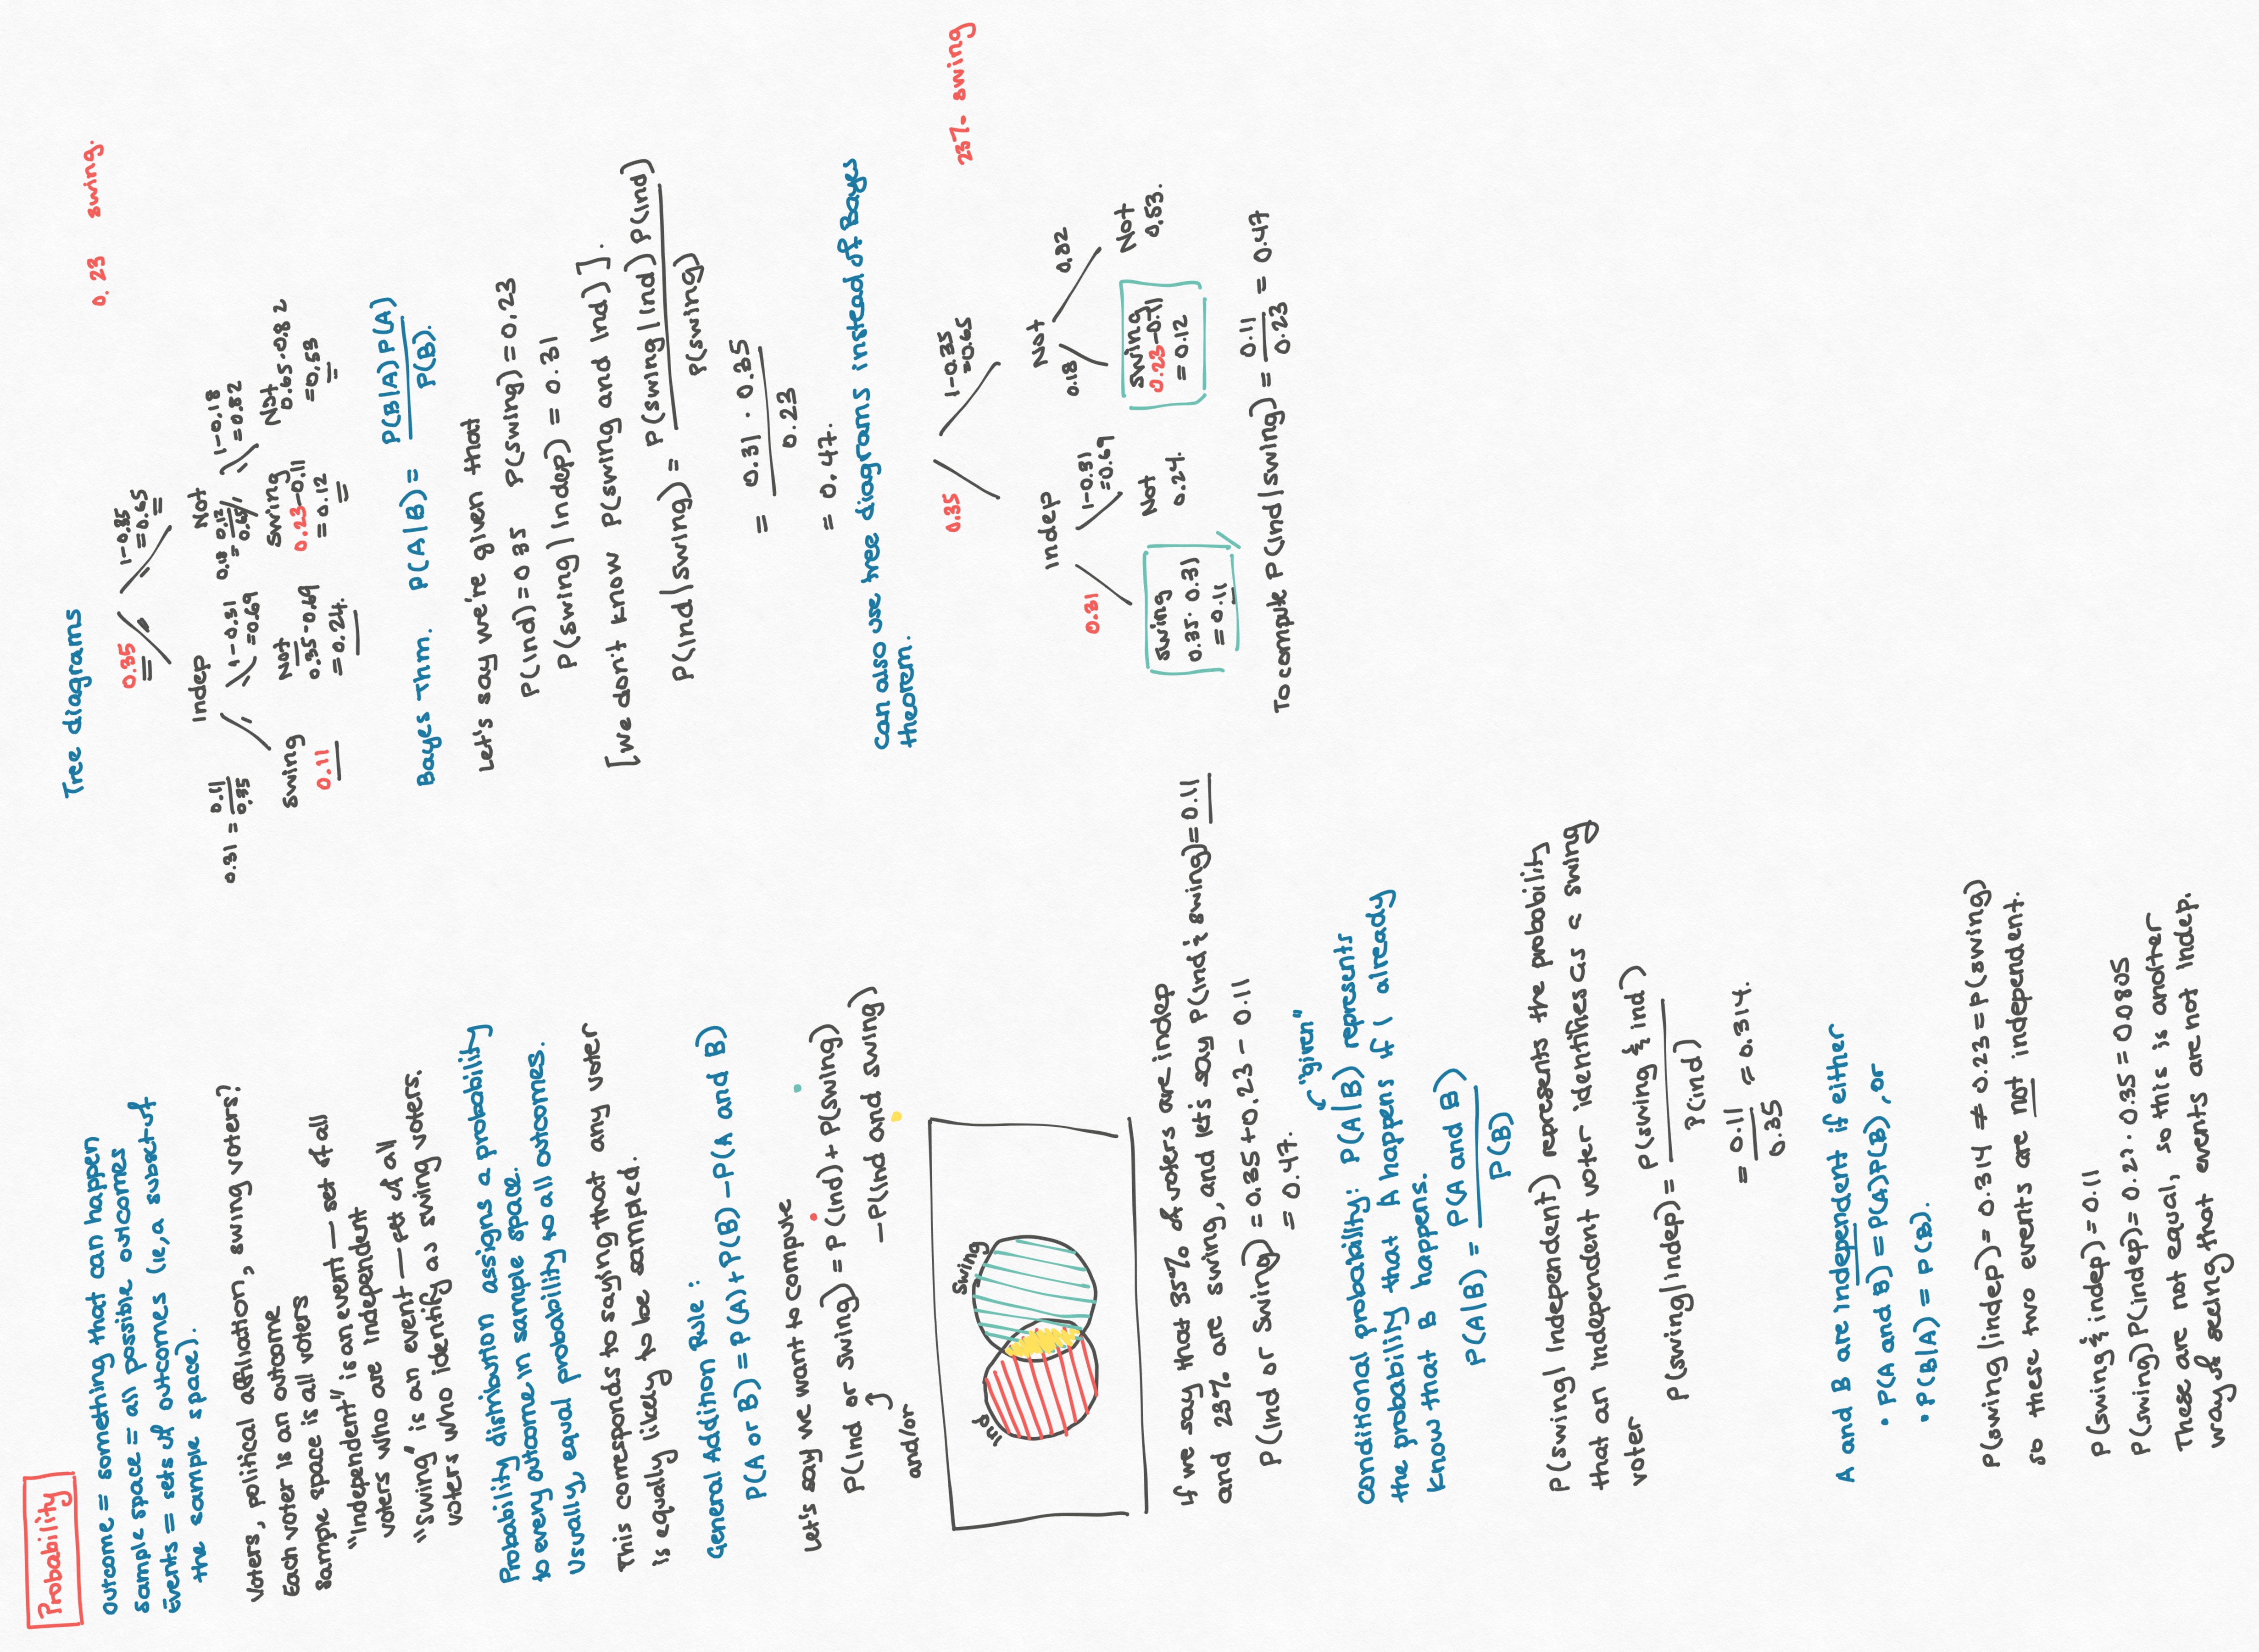 Probability
outcome = something that can happen
sample space = all possible outcomes
Events = sets of outcomes (ie, a subset of
the sample space).
Voters, political affiliation, swing voters?
Each voter is an outcome
Sample space is all voters
"Independent" is an event — set of all
voters who are independent
"swing" is an event — set of all
voters who identify as swing voters.
Probability distribution assigns a probability
to every outcome in sample space.
Usually, equal probability to all outcomes.
This corresponds to saying that any voter
is equally likely to be sampled.
General Addition Rule:
P(A or B) = P(A) + P(B) - P(A and B)
Let's say we want to compute
P(Ind or swing) = P(Ind) + P(swing)
- P(Ind and swing)
and/or
Ind
Swing
If we say that 35% of voters are indep
and 23% are swing, and let's say P(Ind & swing) = 0.11
P(Ind or Swing) = 0.35 + 0.23 - 0.11
= 0.47.
"given"
conditional probability: P(A|B) represents
the probability that A happens if I already
know that B happens.
P(A|B) = P(A and B)
P(B)
P(swing | Independent) represents the probability
that an independent voter identifies as a swing
voter
P(swing | indep) = P(swing & ind)
P(ind)
= 0.11 = 0.314.
0.35
A and B are independent if either
• P(A and B) = P(A)P(B), or
• P(B|A) = P(B).
P(swing | indep) = 0.314 ≠ 0.23 = P(swing)
so these two events are not independent.
P(swing & indep) = 0.11
P(swing)P(indep) = 0.23 · 0.35 = 0.0805
These are not equal, so this is another
way of seeing that events are not indep.
Tree diagrams
0.23 swing.
0.35
1-0.35
=0.65
Indep
Not
0.31 = 0.11
0.35
1-0.31
=0.69
0.18 = 0.12
0.65
1-0.18
=0.82
Swing
0.11
Not
0.35·0.69
=0.24.
Swing
0.23-0.11
=0.12
Not
0.65·0.82
=0.53
Bayes Thm. P(A|B) = P(B|A)P(A)
P(B).
Let's say we're given that
P(Ind) = 0.35 P(swing) = 0.23
P(swing | Indep) = 0.31
[we don't know P(swing and Ind)].
P(Ind | swing) = P(swing | Ind) P(Ind)
P(swing)
= 0.31 · 0.35
0.23
= 0.47.
can also use tree diagrams instead of Bayes
theorem.
23% swing
0.35
1-0.35
=0.65
Indep
Not
0.31
1-0.31
=0.69
0.18
0.82
swing
0.35·0.31
= 0.11
Not
0.24.
swing
0.23-0.11
= 0.12
Not
0.53.
To compute P(Ind | swing) = 0.11 = 0.47
0.23